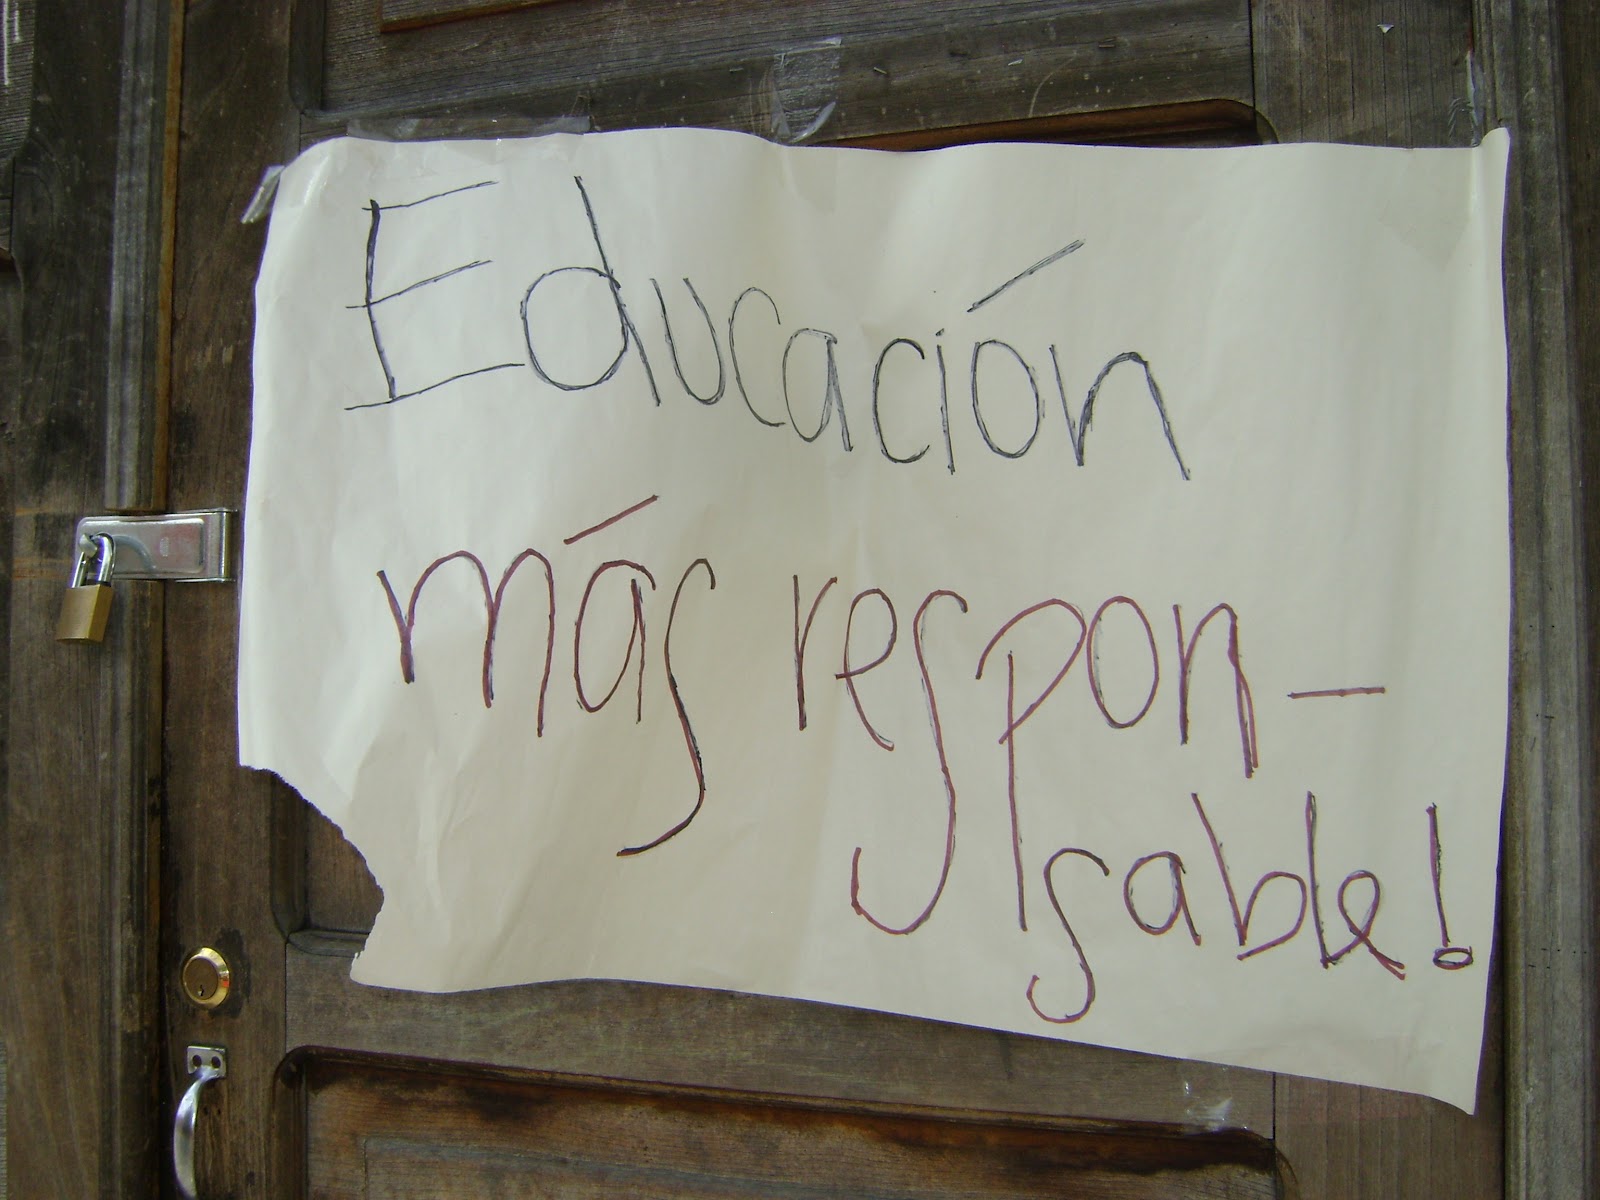 Educación
más respon-
sable!